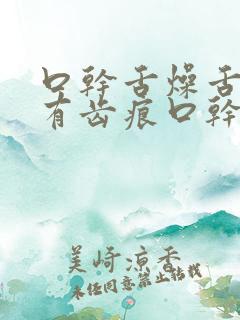 口幹舌燥舌
有齿痕口幹
美崎凉香
未经同意禁止转载